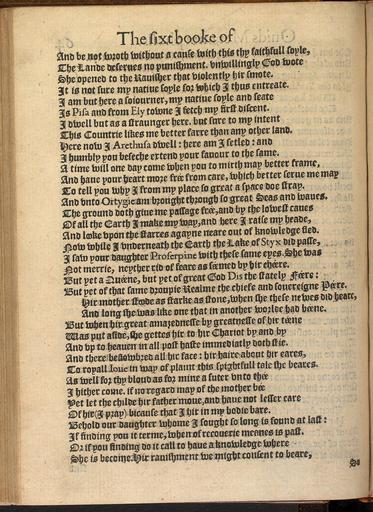 The sixt booke of
And be not wroth without a cause with this thy faithfull soyle,
The Lande deserues no punishment. vnwillingly God wote
She opened to the Rauisher that violently hir smote.
It is not sure my natiue soyle for which I thus entreate.
I am but here a soiourner, my natiue soyle and seate
Is Pisa and from Ely towne I fetch my first discent.
I dwell but as a straunger here. but sure to my intent
This Countrie likes me better farre than any other land.
Here now I Arethusa dwell: here am I setled: and
I humbly you beseche extend your fauour to the same.
A time will one day come when you to mirth may better frame,
And haue your heart more free from care, which better serue me may
To tell you why I from my place so great a space doe stray.
And vnto Ortygie am brought through so great Seas and waues.
The ground doth giue me passage free, and by the lowest caues
Of all the Earth I make my way, and here I raise my heade,
And looke vpon the starres agayne neare out of knowledge fled.
Now while I vnderneath the Earth the Lake of Styx did passe,
I saw your daughter Proserpine with these same eyes. She was
Not merrie, neyther rid of feare as seemed by hir cheere.
But yet a Queene, but yet of great God Dis the stately Feere:
But yet of that same droupie Realme the chiefe and souereigne Peere.
Hir mother stoode as starke as stone, when she these newes did heare,
And long she was like one that in another worlde had beene.
But when hir great amazednesse by greatnesse of hir teene
Was put aside, she gettes hir to hir Chariot by and by
And vp to heauen in all post haste immediately doth stie.
And there beslowbred all hir face: hir haire about hir eares,
To royall Ioue in way of plaint this spightfull tale she beares.
As well for thy bloud as for mine a suter vnto thee
I hither come. if no regard may of the mother bee
Yet let the childe hir father moue, and haue not lesser care
Of hir (I pray) bicause that I hir in my bodie bare.
Behold our daughter whome I sought so long is found at last:
If finding you it terme, when of recouerie meanes is past.
Or if you finding do it call to haue a knowledge where
She is become. Hir rauishment we might consent to beare,
So